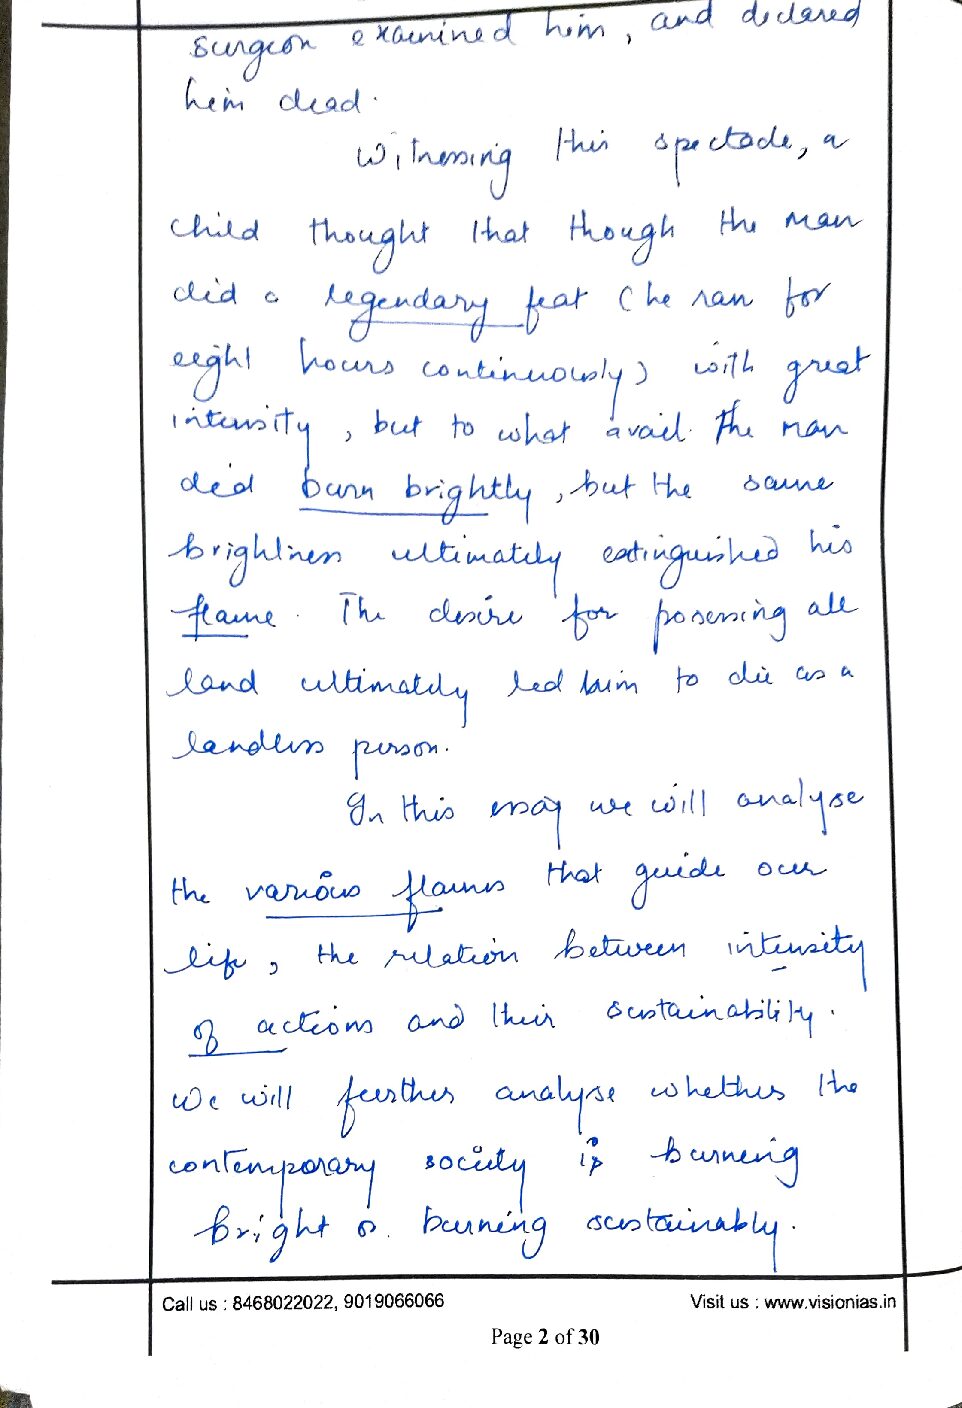 surgeon examined him, and declared
him dead.
Witnessing this spectacle, a
child thought that though the man
did a legendary feat (he ran for
eight hours continuously) with great
intensity, but to what avail. The man
did burn brightly, but the same
brightness ultimately extinguished his
flame. The desire for possessing all
land ultimately led him to die as a
landless person.
In this essay we will analyse
the various flames that guide our
life, the relation between intensity
of actions and their sustainability.
We will further analyse whether the
contemporary society is burning
bright or burning sustainably.
Call us : 8468022022, 9019066066
Visit us : www.visionias.in
Page 2 of 30